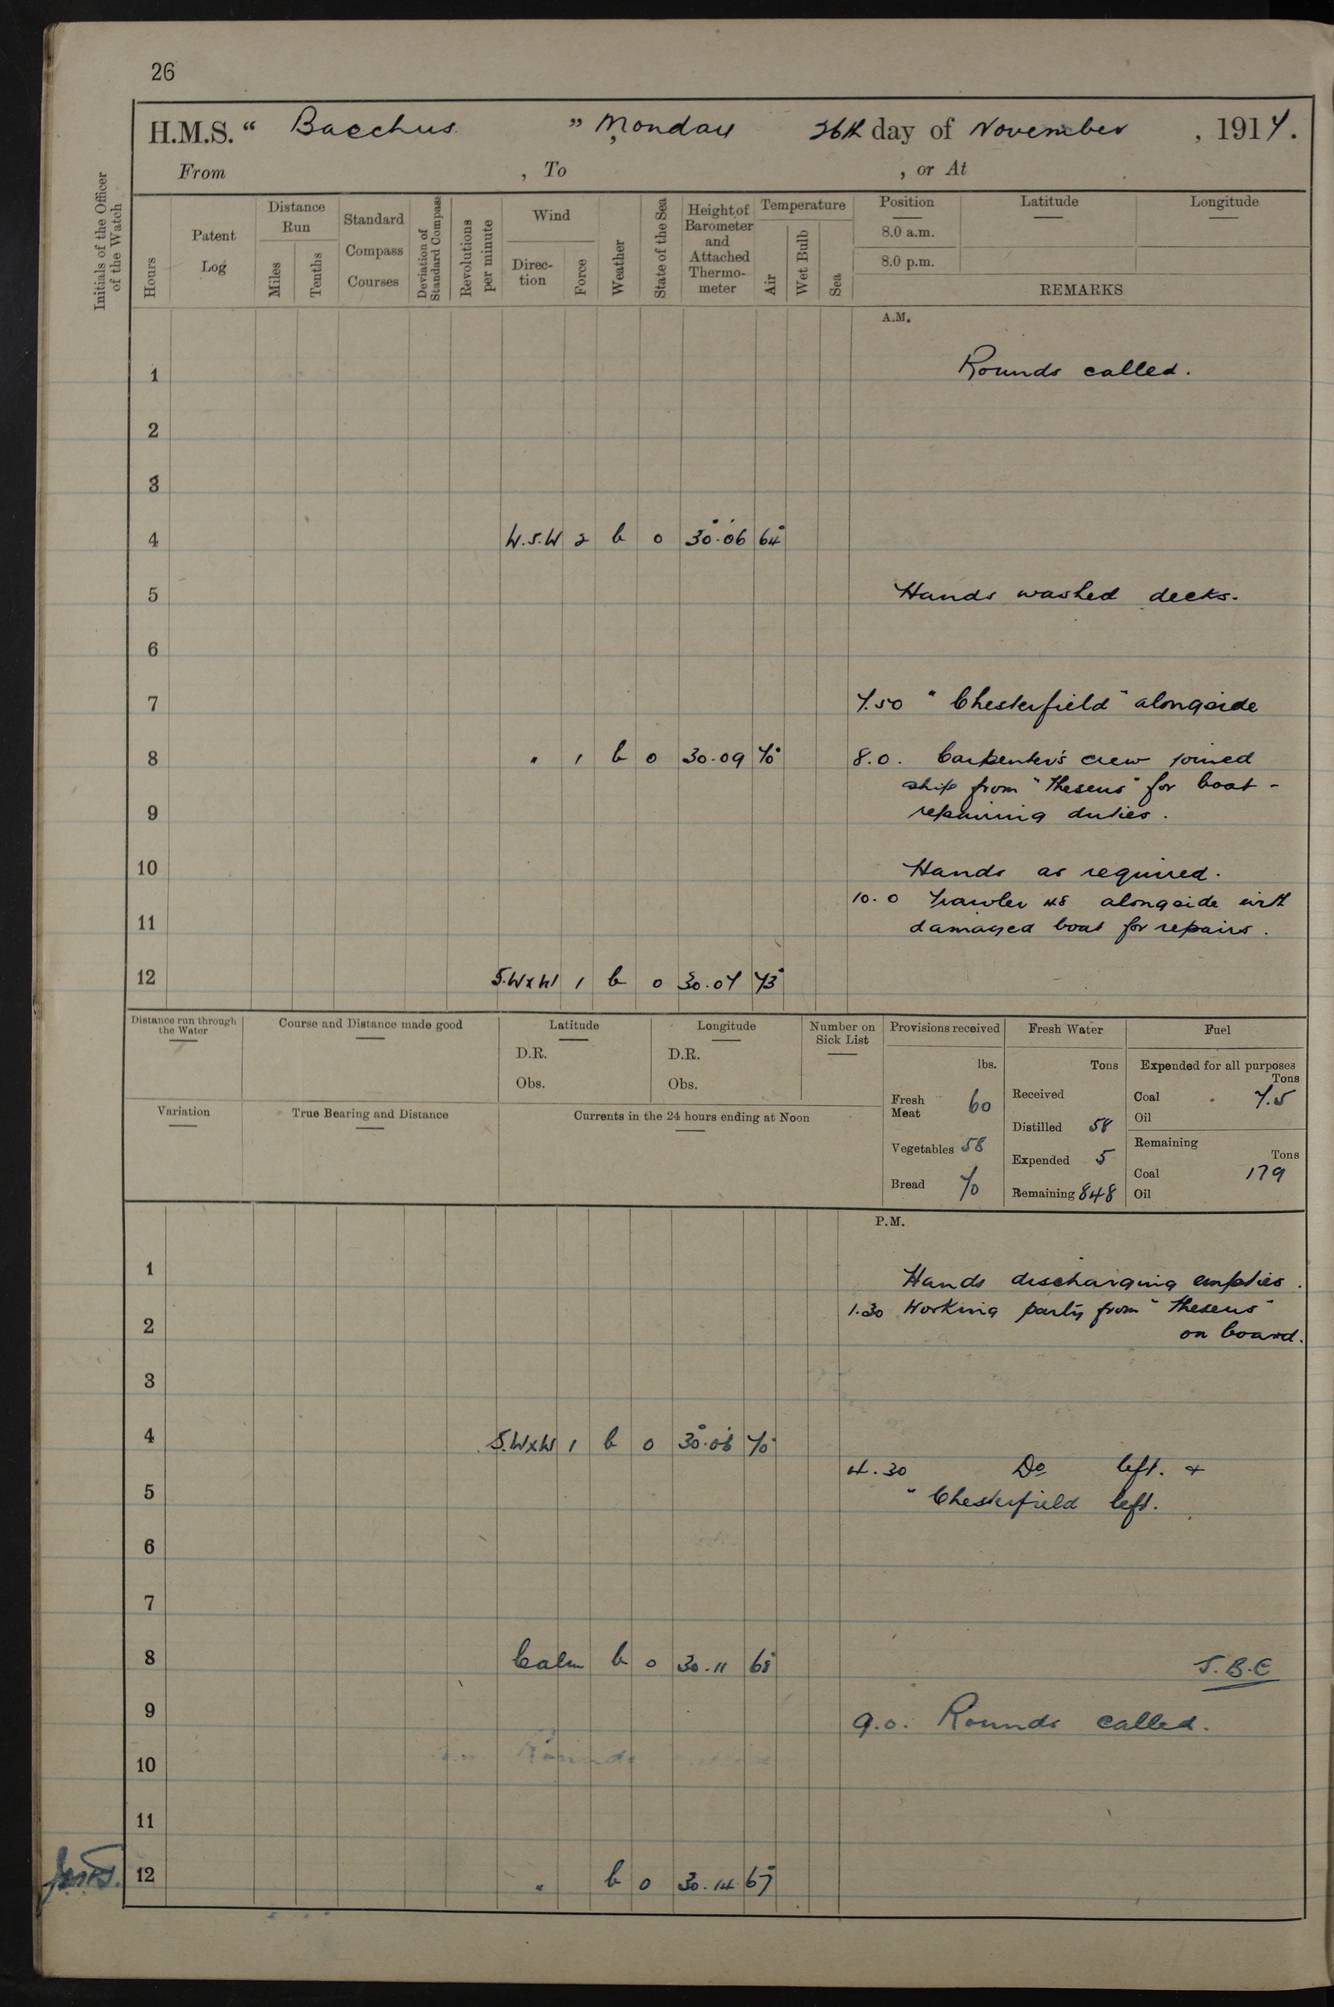 26
H.M.S. “ Bacchus ” Monday 26th day of November , 1917.
From , To , or At
Initials of the Officer of the Watch
Hours
Patent Log
Distance Run
Miles
Tenths
Standard Compass Courses
Deviation of Standard Compass
Revolutions per minute
Wind
Direction
Force
Weather
State of the Sea
Height of Barometer and Attached Thermometer
Temperature
Air
Wet Bulb
Sea
Position
8.0 a.m.
8.0 p.m.
Latitude
Longitude
REMARKS
A.M.
1 Rounds called.
2
3
4 W.S.W 2 b 0 30.06 64°
5 Hands washed decks.
6
7 7.50 "Chesterfield" alongside
8 " 1 b 0 30.09 70° 8.0. Carpenter's crew joined
ship from "Theseus" for boat-
9 repairing duties.
10 Hands as required.
10.0 Trawler 48 alongside with
11 damaged boat for repairs.
12 S.WxW 1 b 0 30.07 73°
Distance run through the Water
Course and Distance made good
Latitude
D.R.
Obs.
Longitude
D.R.
Obs.
Number on Sick List
Provisions received
lbs.
Fresh Meat 60
Vegetables 58
Bread 70
Fresh Water
Tons
Received
Distilled 58
Expended 5
Remaining 848
Fuel
Expended for all purposes
Tons
Coal 7.5
Oil
Remaining
Tons
Coal 179
Oil
Variation
True Bearing and Distance
Currents in the 24 hours ending at Noon
P.M.
1 Hands discharging empties.
1.30 Working party from "Theseus"
2 on board.
3
4 S.WxW 1 b 0 30.06 70°
4.30 Do left. &
5 "Chesterfield left.
6
7
8 Calm b 0 30.11 68°
J.B.E
9 9.0. Rounds called.
10
11
12 " b 0 30.14 67°